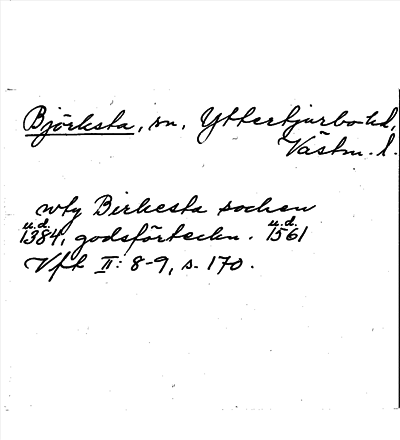 Björksta, sn, Yttertjurbo hd,
Västm. l.
wty Birkesta sochen
u.d. u.d.
1384, godsförteckn. 1561
Vft II: 8-9, s. 170.